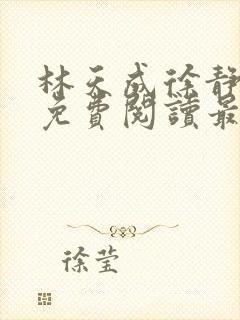 林天成徐靜
免費閱讀最
徐莹